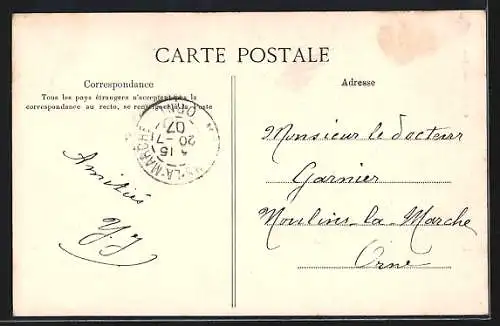 CARTE POSTALE
Correspondance
Tous les pays étrangers n'acceptant pas la
correspondance au recto, se renseigner à la Poste
Amitiés
Adresse
Monsieur le docteur
Garnier
Moulins la Marche
Orne
MOULINS-LA-MARCHE
15
20-7
07
ORNE